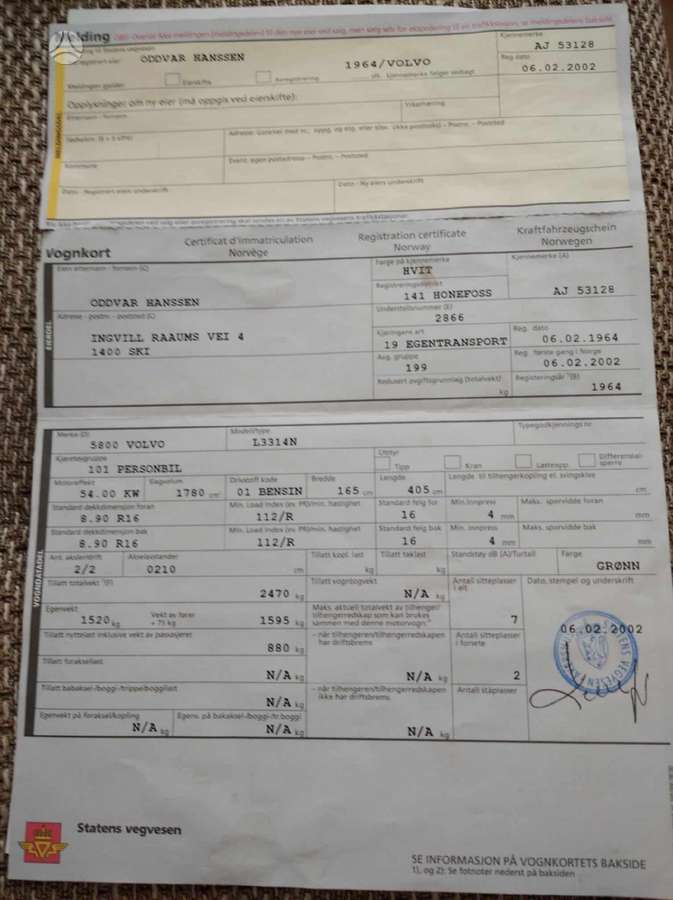 Melding
OBS! Oversikt
ODDVAR HANSSEN
1964/VOLVO
Kjennemerke
AJ 53128
Reg. dato
06.02.2002
Meldingen gjelder:
Eierskifte
Avregistrering
Opplysninger om ny eier (må oppgis ved eierskifte):
Etternavn - fornavn
Yrke/næring
Kommune
Event. egen postadresse - Postnr. - Poststed
Dato - Registrert eiers underskrift
Dato - Ny eiers underskrift
MELDINGSDEL
Vognkort
Certificat d'immatriculation
Norvège
Registration certificate
Norway
Kraftfahrzeugschein
Norwegen
EIERDEL
Eiers etternavn - fornavn (C)
ODDVAR HANSSEN
Farge på kjennemerke
HVIT
Kjennemerke (A)
AJ 53128
Registreringsdistrikt
141 HONEFOSS
Adresse - postnr. - poststed (C)
INGVILL RAAUMS VEI 4
1400 SKI
Understellsnummer (E)
2866
Kjøringens art
19 EGENTRANSPORT
Reg. dato
06.02.1964
Avg. gruppe
199
Reg. første gang i Norge
06.02.2002
Redusert avgiftsgrunnlag (totalvekt)
kg
Registreringsår ¹⁾(B)
1964
VOGNDATADEL
Merke (D)
5800 VOLVO
Modell/type
L3314N
Typegodkjennings nr.
Kjøretøygruppe
101 PERSONBIL
Utstyr
Tipp
Kran
Løftepopp
Differensial-
sperre
Motoreffekt
54.00 KW
Slagvolum
1780 cm³
Drivstoff kode
01 BENSIN
Bredde
165 cm
Lengde
405 cm
Lengde til tilhengerkopling el. svingskive
cm
Standard dekkdimensjon foran
8.90 R16
Min. Load index (ev. PR)/min. hastighet
112/R
Standard felg for
16
Min. innpress
4 mm
Maks. sporvidde foran
mm
Standard dekkdimensjon bak
8.90 R16
Min. Load index (ev. PR)/min. hastighet
112/R
Standard felg bak
16
Min. innpress
4 mm
Maks. sporvidde bak
mm
Ant. aksler/drift
2/2
Akselavstander
0210
cm
Tillatt kopl. last
kg
Tillatt taklast
kg
Standstøy dB (A)/Turtall
Farge
GRØNN
Tillatt totalvekt ²⁾(F)
2470 kg
Tillatt vogntogvekt
N/A kg
Antall sitteplasser
i alt
7
Dato, stempel og underskrift
06.02.2002
Egenvekt
1520 kg
Vekt av fører
+ 75 kg
1595 kg
Maks. aktuell totalvekt av tilhenger/
tilhengerredskap som kan brukes
sammen med denne motorvogn:
Tillatt nyttelast inklusive vekt av passasjerer
880 kg
- når tilhengeren/tilhengerredskapen
har driftsbrems
Antall sitteplasser
i forsete
2
Tillatt foraksellast
N/A kg
N/A kg
Tillatt bakaksel-/boggi-/trippelboggilast
N/A kg
- når tilhengeren/tilhengerredskapen
ikke har driftsbrems
Antall ståplasser
Egenvekt på foraksel/kopling
N/A kg
Egenv. på bakaksel-/boggi-/tr.boggi
N/A kg
N/A kg
Statens vegvesen
SE INFORMASJON PÅ VOGNKORTETS BAKSIDE
1), og 2): Se fotnoter nederst på baksiden